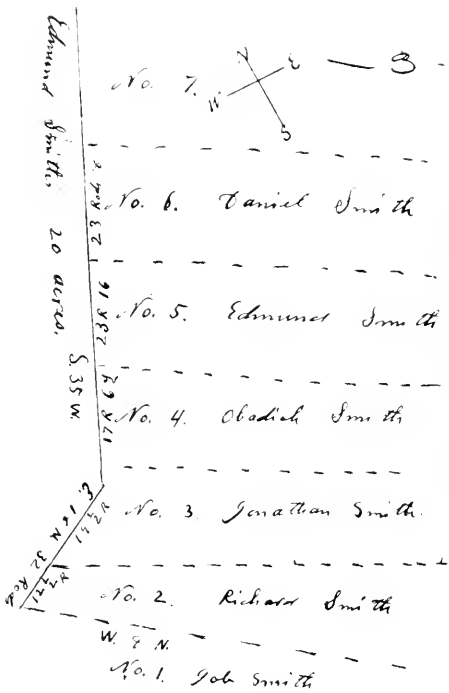 No. 7.
N
E
W
S
3
No. 6. Daniel Smith
No. 5. Edmund Smith
No. 4. Obadiah Smith
No. 3 Jonathan Smith.
No. 2. Richard Smith
W. 9 N.
No. 1. Job Smith
Edmund Smiths 20 acres. S. 35 W.
23 Rods
E. 16 N 32 Rods